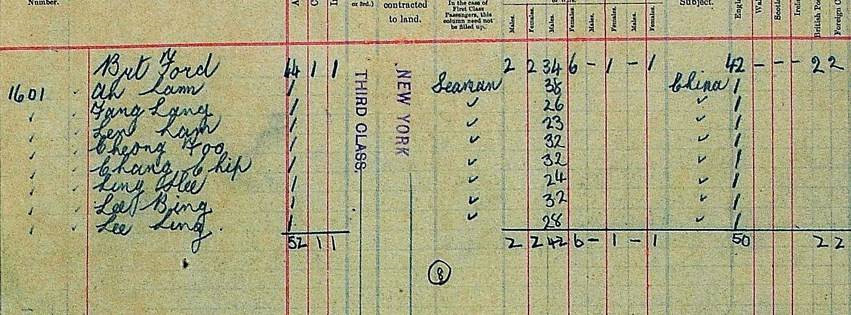 Number. or 3rd.) contracted to land. In the case of First Class Passengers, this column need not be filled up. Males. Females. Males. Females. Males. Females. Males. Females. Subject.
Brt Ford 44 1 1 2 2 34 6 - 1 - 1 42 - - - 2 2
1601 ✓ Ah Lam 1 Seaman 38 China 1
✓ ✓ Fang Lang 1 ✓ 26 ✓ 1
✓ ✓ Len Lam 1 ✓ 23 ✓ 1
✓ ✓ Cheong Foo 1 ✓ 32 ✓ 1
✓ ✓ Chang Chip 1 ✓ 32 ✓ 1
✓ ✓ Ling Hee 1 ✓ 24 ✓ 1
✓ ✓ Lee Bing 1 ✓ 32 ✓ 1
✓ ✓ Lee Ling. 1 ✓ 28 ✓ 1
52 1 1 2 2 42 6 - 1 - 1 50 2 2
THIRD CLASS
NEW YORK
8